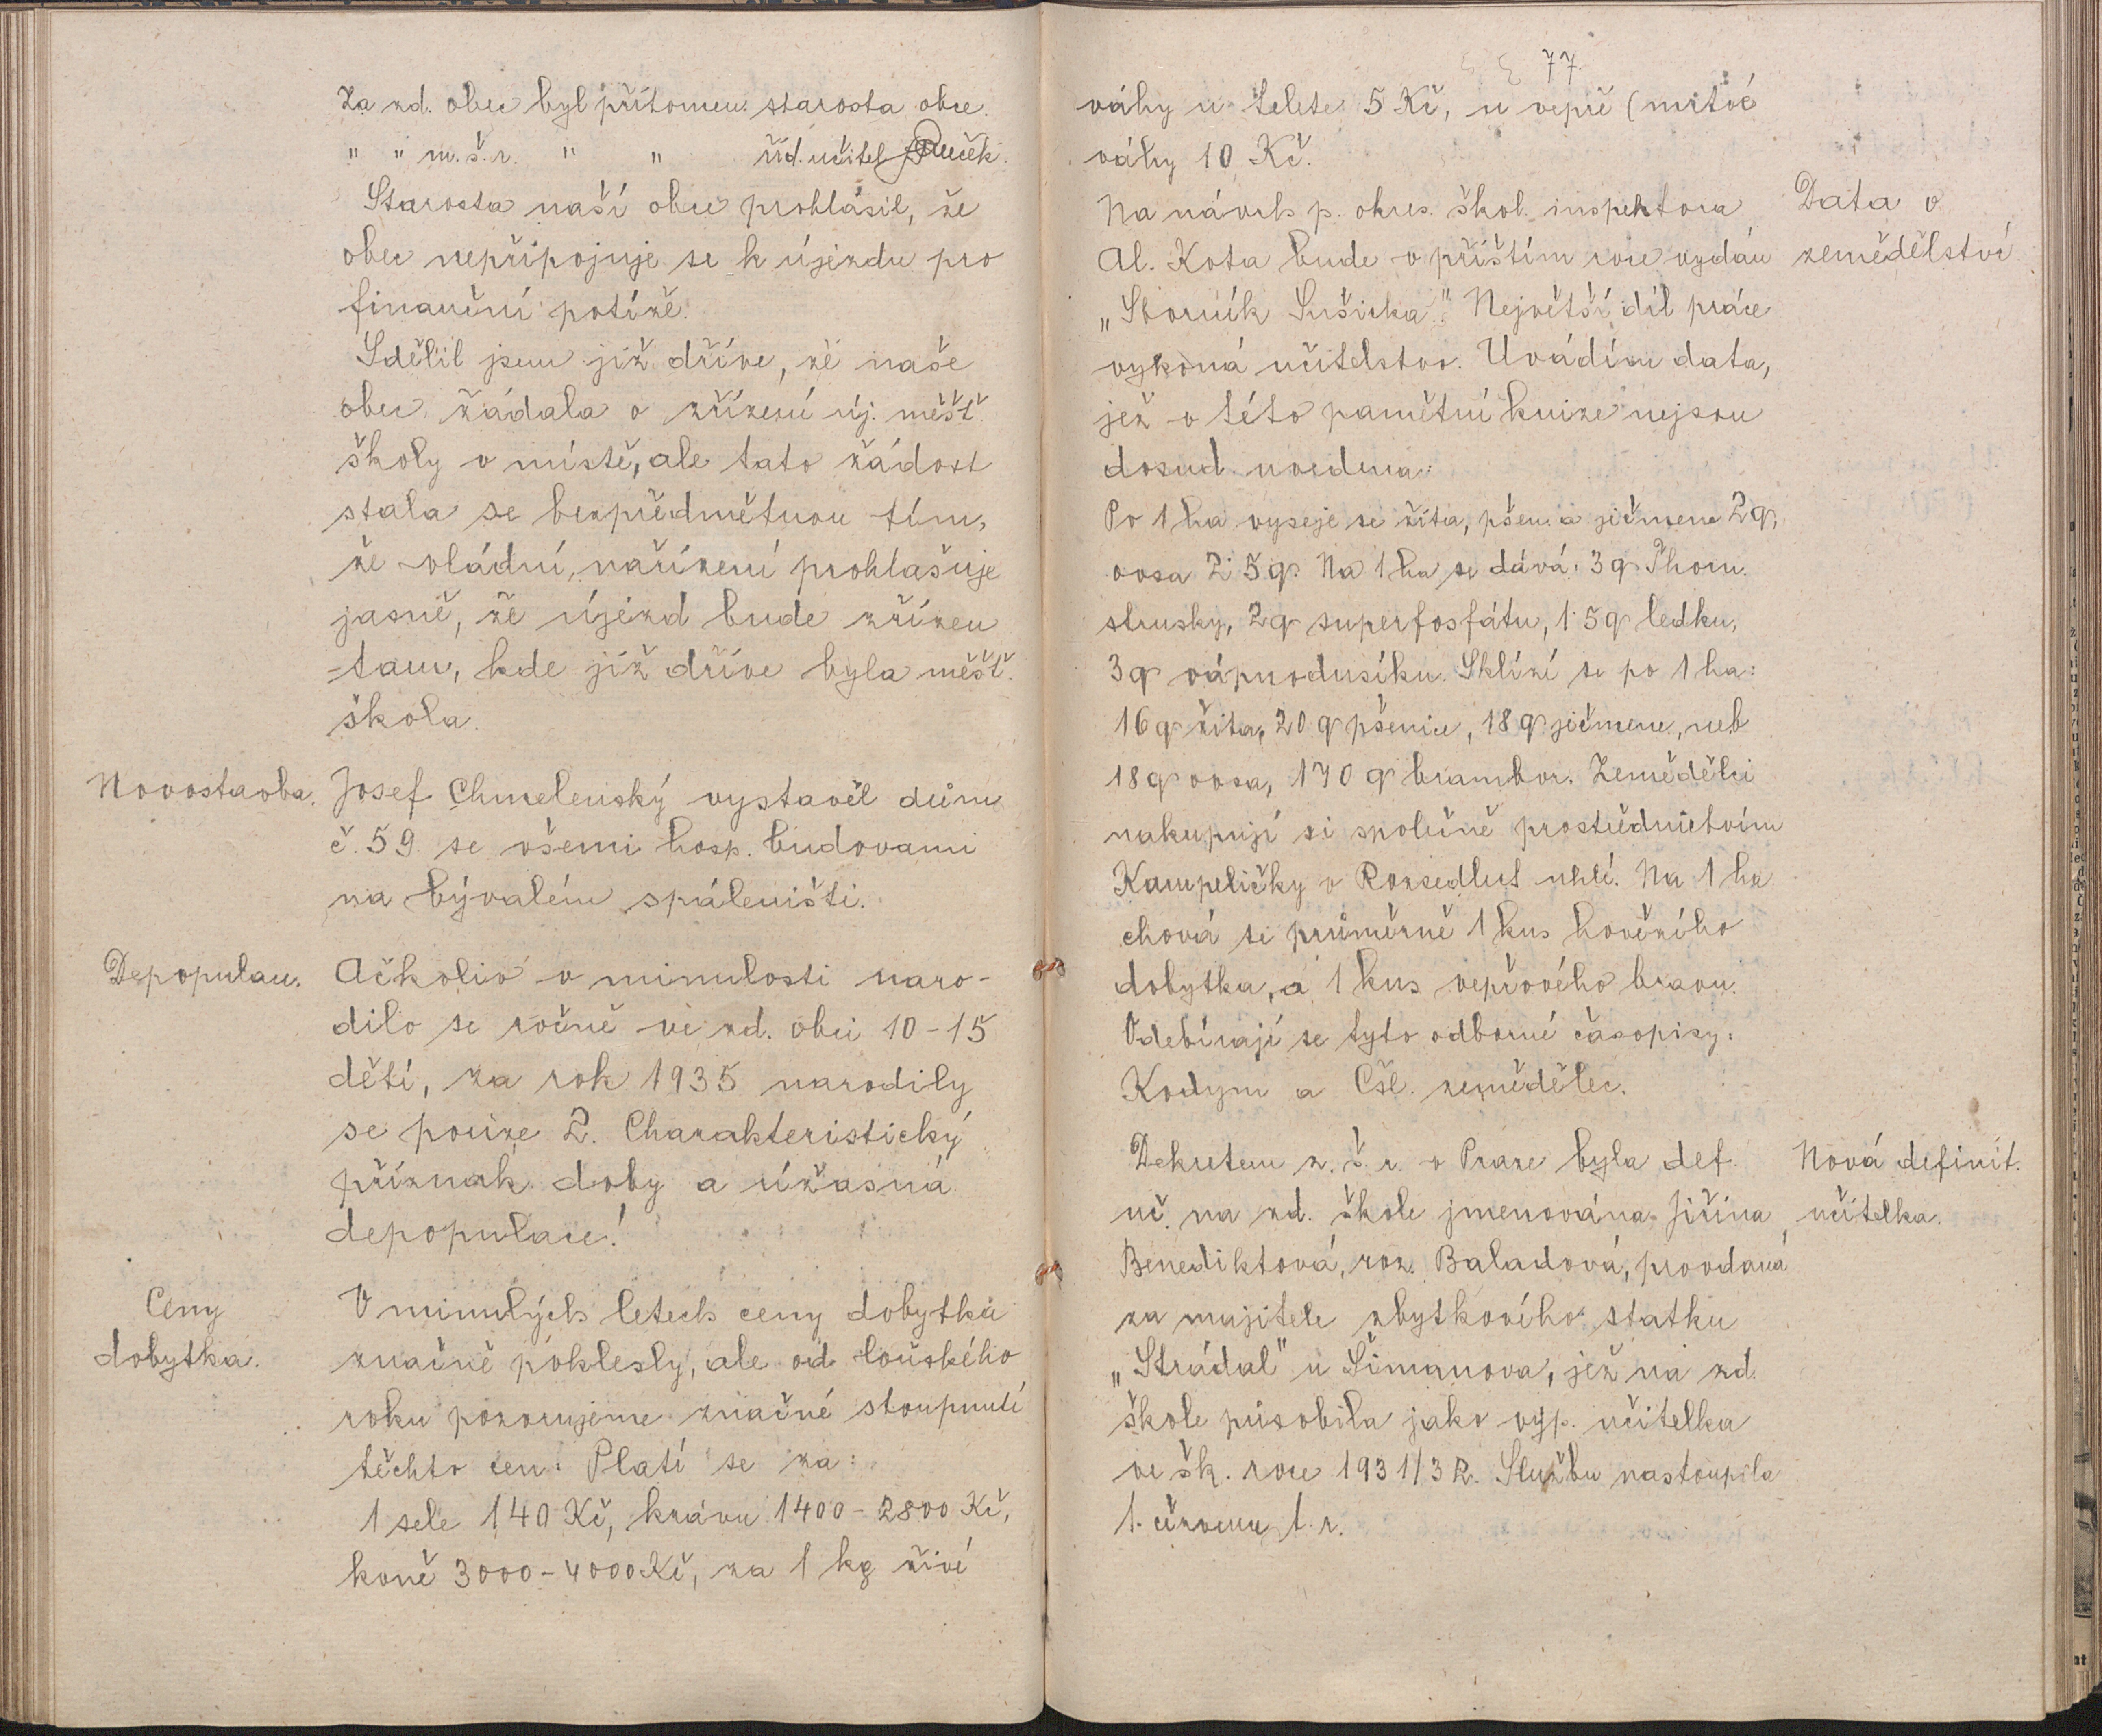 Za zd. obec byl přítomen: starosta obce.
" " m.š.r. " " říd. učitel
Starosta naší obce prohlásil, že
obec nepřipojuje se k újezdu pro
finanční potíže.
Sdělil jsem již dříve, že naše
obec žádala o zřízení új. měšť.
školy v místě, ale tato žádost
stala se bezpředmětnou tím,
že vládní nařízení prohlašuje
jasně, že újezd bude zřízen
tam, kde již dříve byla měšť.
škola.
Novostavba.
Josef Chmelenský vystavěl dům
č. 59 se všemi hosp. budovami
na bývalém spáleništi.
Depopulac.
Ačkoliv v minulosti naro-
dilo se ročně ve zd. obci 10-15
dětí, za rok 1935 narodily
se pouze 2. Charakteristický
příznak doby a úžasná
depopulace!
Ceny
dobytka.
V minulých letech ceny dobytka
značně poklesly, ale od loňského
roku pozorujeme značné stoupnutí
těchto cen: Platí se za:
1 sele 140 Kč, krávu 1400-2800 Kč,
koně 3000-4000 Kč, za 1 kg živé
77.
váhy u telete 5 Kč, u vepře (mrtvé
váhy 10 Kč.
Data o
zemědělství
Na návrh p. okres. škol. inspektora
Al. Kota bude v příštím roce vydán
„Sborník Sušicka." Největší díl práce
vykoná učitelstvo. Uvádím data,
jež v této pamětní knize nejsou
dosud uvedena:
Po 1 ha vyseje se žita, pšen. a ječmene 2q,
ovsa 2·5q. Na 1 ha se dává: 3q Thom.
strusky, 2q superfosfátu, 1·5q ledku,
3q vápnodusíku. Sklízí se po 1 ha:
16q žita, 20q pšenice, 18q ječmene, neb
18q ovsa, 170q brambor. Zemědělci
nakupují si společně prostřednictvím
Kampeličky v Rozsedlech uhlí. Na 1 ha
chová se průměrně 1 kus hovězího
dobytka, a 1 kus vepřového bravu.
Odebírají se tyto odborné časopisy:
Kodym a Čsl. zemědělec.
Nová definit.
učitelka.
Dekretem z. š. r. v Praze byla def.
uč. na zd. škole jmenována Jiřina
Benediktová, roz. Baladová, provdaná
za majitele zbytkového statku
„Strádal" u Šimanova, jež na zd.
škole působila jako výp. učitelka
ve šk. roce 1931/32. Službu nastoupila
1. června t. r.